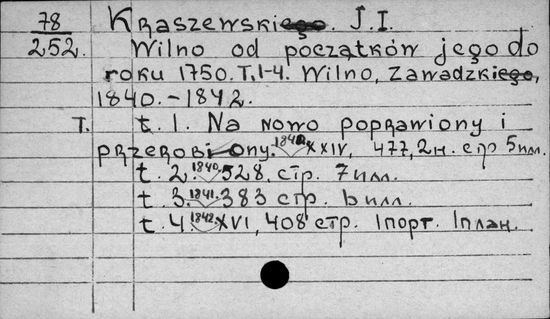 78 Kraszewskiego. J.I.
252. Wilno od początków jego do
roku 1750. T.1-4. Wilno, Zawadzkiego,
1840.-1842.
T. t. 1. Na nowo poprawiony i
przerobiony. 1840. XXIV, 477, 2н. стр 5илл.
t. 2. 1840. 528. стр. 7илл.
t. 3. 1841. 383 стр. 6илл.
t. 4. 1842. XVI, 408 стр. 1порт. 1план.